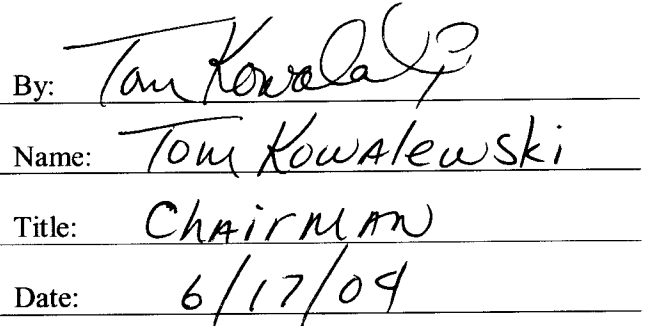 By: Tom Kowalewski
Name: Tom Kowalewski
Title: Chairman
Date: 6/17/04